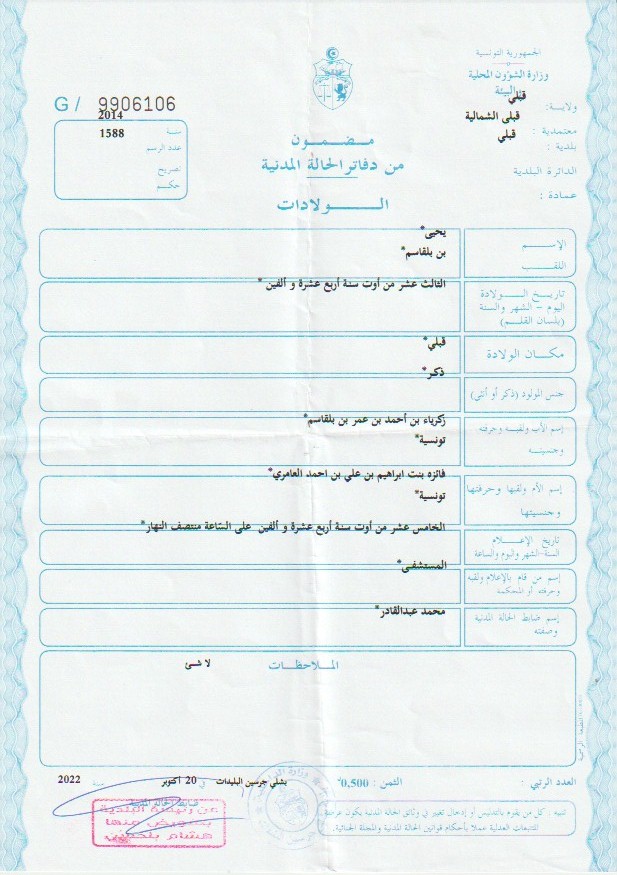 الجمهورية التونسية
وزارة الشؤون المحلية
والبيئة
ولاية: قبلي
معتمدية : قبلى الشمالية
بلدية : قبلي
الدائرة البلدية
عمادة :
G / 9906106
سنة 2014
عدد الرسم 1588
تصريح
حكم
مضمون
من دفاتر الحالة المدنية
الولادات
الإسم يحيى*
اللقب بن بلقاسم*
تاريخ الولادة الثالث عشر من أوت سنة أربع عشرة و ألفين *
اليوم - الشهر والسنة
(بلسان القلم)
مكان الولادة قبلي*
جنس المولود (ذكر أو أنثى) ذكر*
إسم الأب ولقبه وحرفته زكرياء بن أحمد بن عمر بن بلقاسم*
وجنسيته تونسية*
إسم الأم ولقبها وحرفتها فائزه بنت ابراهيم بن علي بن احمد العامري*
وجنسيتها تونسية*
تاريخ الإعلام الخامس عشر من أوت سنة أربع عشرة و ألفين على السّاعة منتصف النهار*
السنة-الشهر واليوم والساعة
إسم من قام بالإعلام ولقبه المستشفى*
وحرفته أو المحكمة
إسم ضابط الحالة المدنية محمد عبدالقادر*
وصفته
الملاحظات
لا شئ
العدد الرتبي : الثمن : 0,500 بشلي جرسين البليدات في 20 أكتوبر سنة 2022
ضابط الحالة المدنية
عن رئيسة البلدية
بتفويض منها
هشام بلحسن
تنبيه : كل من يقوم بالتدليس أو إدخال تغيير في وثائق الحالة المدنية يكون عرضة
للتتبعات العدلية عملا بأحكام قوانين الحالة المدنية والمجلة الجنائية.